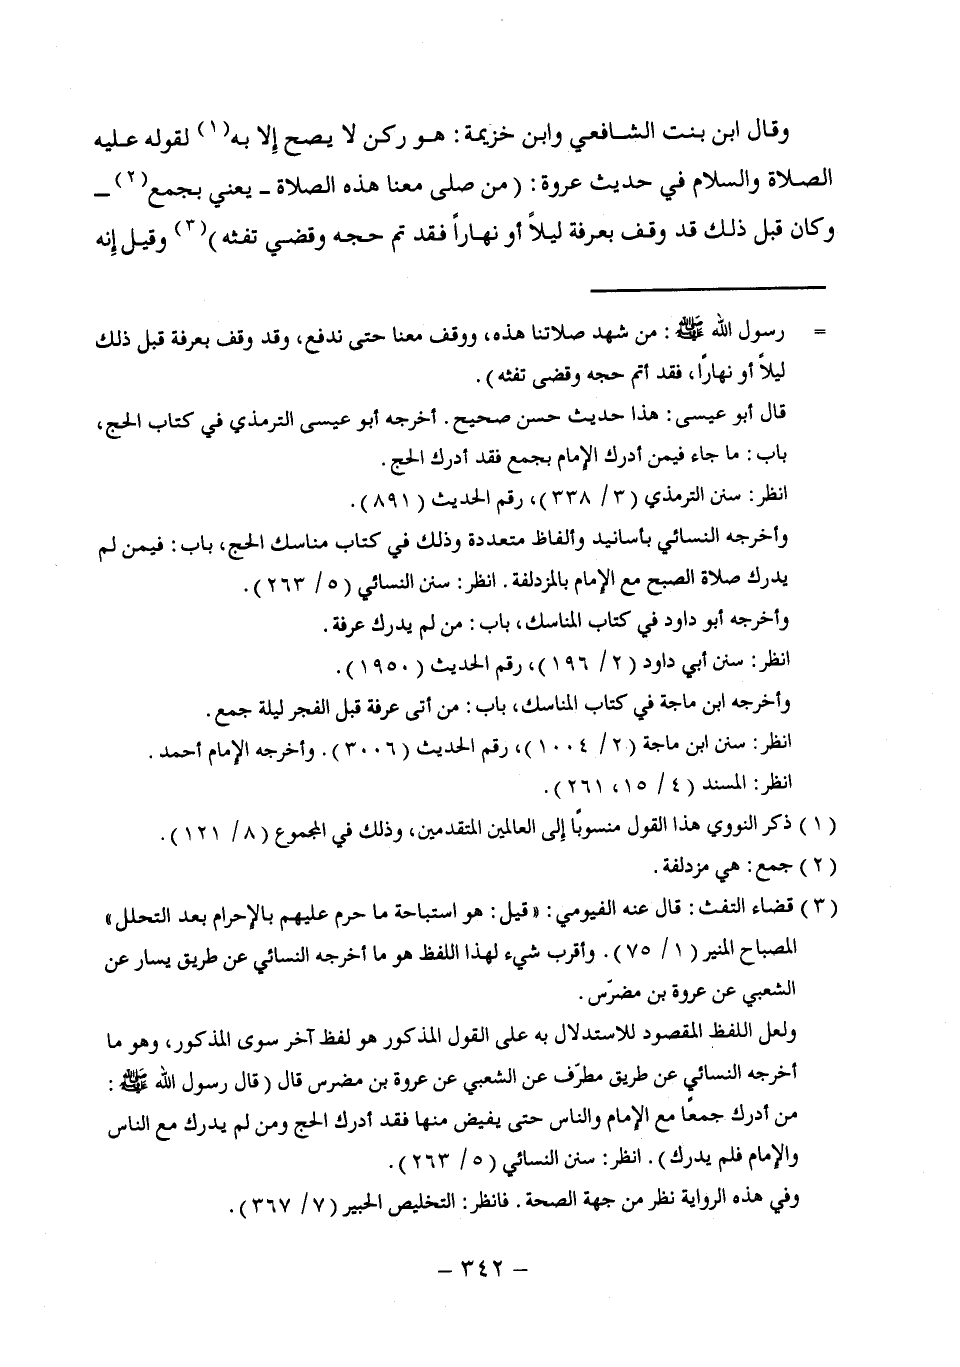 وقال ابن بنت الشافعي وابن خزيمة : هو ركن لا يصح إلا به(١) لقوله عليه
الصلاة والسلام في حديث عروة : ( من صلى معنا هذه الصلاة ـ يعني بجمع(٢) ـ
وكان قبل ذلك قد وقف بعرفة ليلاً أو نهاراً فقد تم حجه وقضي تفثه )(٣) وقيل إنه
= رسول الله ﷺ : من شهد صلاتنا هذه، ووقف معنا حتى ندفع، وقد وقف بعرفة قبل ذلك
ليلاً أو نهارًا، فقد أتم حجه وقضى تفثه ) .
قال أبو عيسى : هذا حديث حسن صحيح . أخرجه أبو عيسى الترمذي في كتاب الحج،
باب : ما جاء فيمن أدرك الإمام بجمع فقد أدرك الحج .
انظر : سنن الترمذي ( ٣ / ٣٣٨ )، رقم الحديث ( ٨٩١ ) .
وأخرجه النسائي بأسانيد وألفاظ متعددة وذلك في كتاب مناسك الحج، باب : فيمن لم
يدرك صلاة الصبح مع الإمام بالمزدلفة . انظر : سنن النسائي ( ٥ / ٢٦٣ ) .
وأخرجه أبو داود في كتاب المناسك، باب : من لم يدرك عرفة .
انظر : سنن أبي داود ( ٢ / ١٩٦ )، رقم الحديث ( ١٩٥٠ ) .
وأخرجه ابن ماجة في كتاب المناسك، باب : من أتى عرفة قبل الفجر ليلة جمع .
انظر : سنن ابن ماجة ( ٢ / ١٠٠٤ )، رقم الحديث ( ٣٠٠٦ ) . وأخرجه الإمام أحمد .
انظر : المسند ( ٤ / ١٥، ٢٦١ ) .
( ١ ) ذكر النووي هذا القول منسوبًا إلى العالمين المتقدمين، وذلك في المجموع ( ٨ / ١٢١ ) .
( ٢ ) جمع : هي مزدلفة .
( ٣ ) قضاء التفث : قال عنه الفيومي : « قيل : هو استباحة ما حرم عليهم بالإحرام بعد التحلل »
المصباح المنير ( ١ / ٧٥ ) . وأقرب شيء لهذا اللفظ هو ما أخرجه النسائي عن طريق يسار عن
الشعبي عن عروة بن مضرّس .
ولعل اللفظ المقصود للاستدلال به على القول المذكور هو لفظ آخر سوى المذكور، وهو ما
أخرجه النسائي عن طريق مطرّف عن الشعبي عن عروة بن مضرس قال ( قال رسول الله ﷺ :
من أدرك جمعًا مع الإمام والناس حتى يفيض منها فقد أدرك الحج ومن لم يدرك مع الناس
والإمام فلم يدرك ) . انظر : سنن النسائي ( ٥ / ٢٦٣ ) .
وفي هذه الرواية نظر من جهة الصحة . فانظر : التلخيص الحبير ( ٧ / ٣٦٧ ) .
– ٣٤٢ –